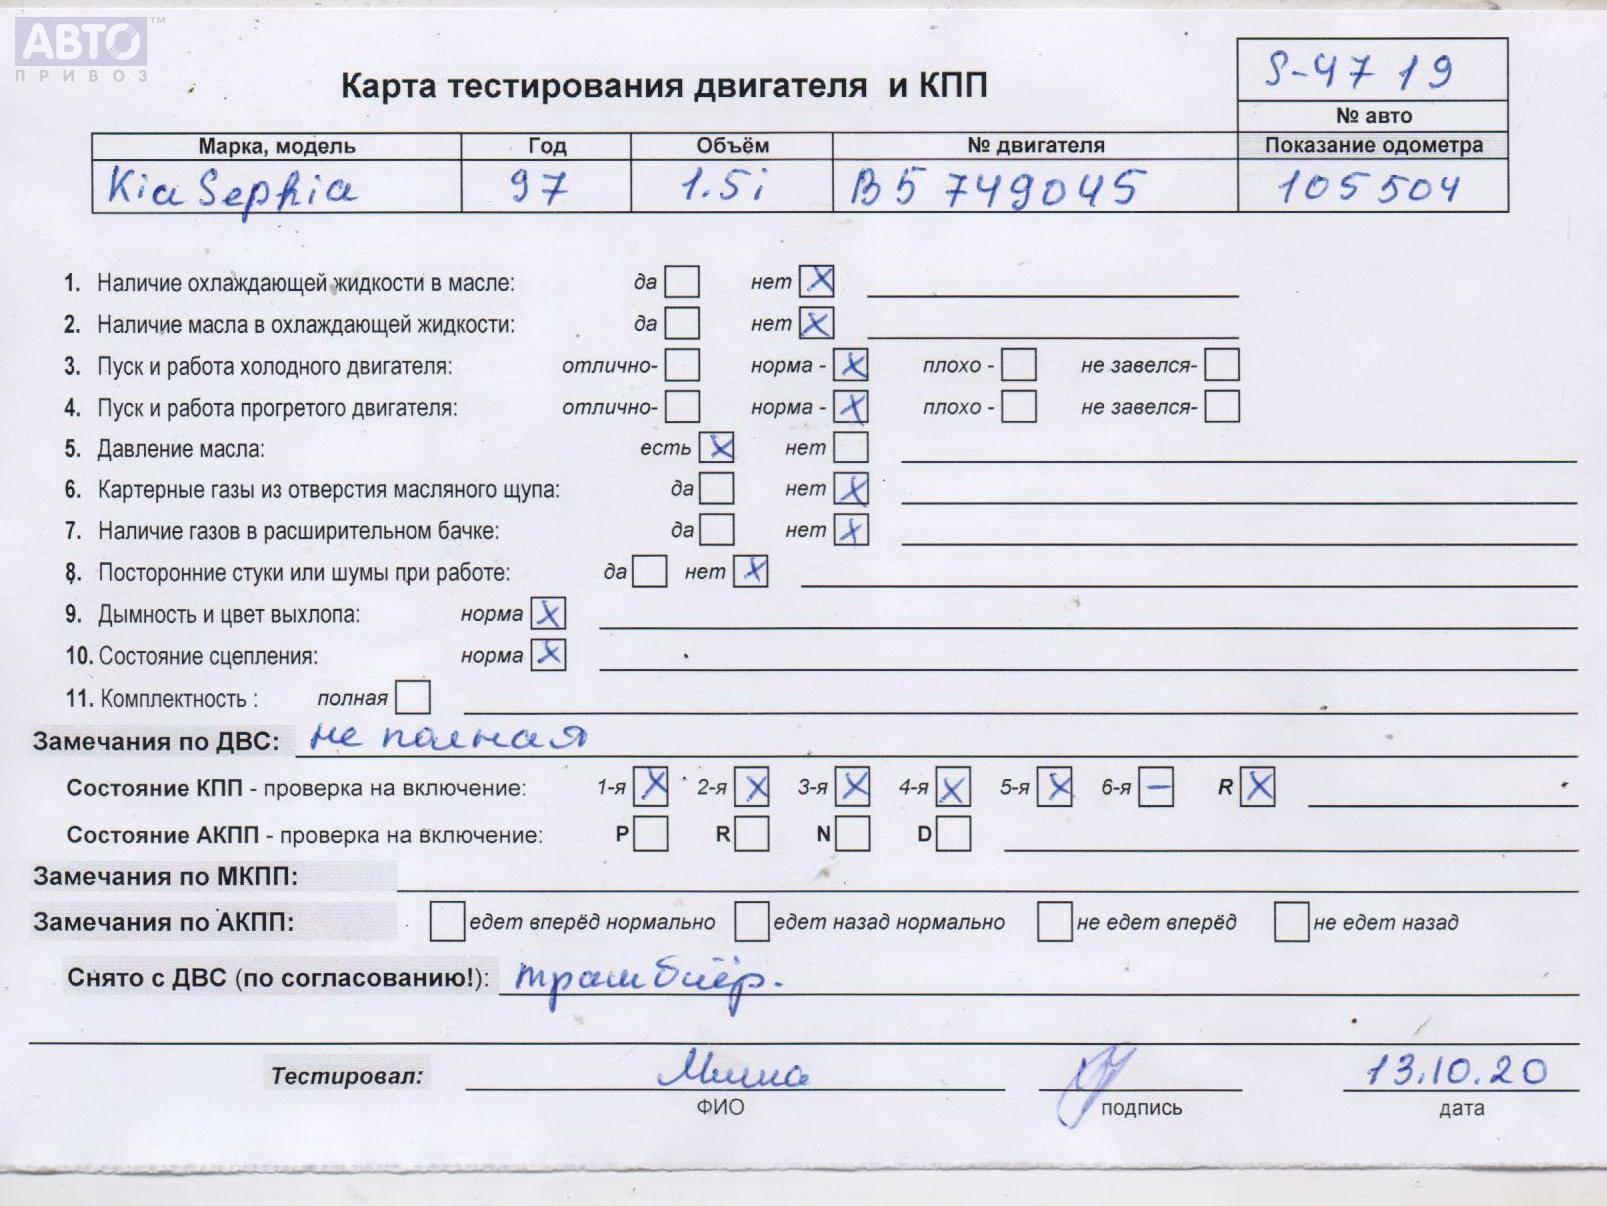 АВТО™
ПРИВОЗ
Карта тестирования двигателя и КПП
S-4719
№ авто
Марка, модель Год Объём № двигателя Показание одометра
Kia Sephia 97 1.5i B5 749045 105504
1. Наличие охлаждающей жидкости в масле: да нет X
2. Наличие масла в охлаждающей жидкости: да нет X
3. Пуск и работа холодного двигателя: отлично- норма - X плохо - не завелся-
4. Пуск и работа прогретого двигателя: отлично- норма - X плохо - не завелся-
5. Давление масла: есть X нет
6. Картерные газы из отверстия масляного щупа: да нет X
7. Наличие газов в расширительном бачке: да нет X
8. Посторонние стуки или шумы при работе: да нет X
9. Дымность и цвет выхлопа: норма X
10. Состояние сцепления: норма X
11. Комплектность : полная
Замечания по ДВС: не полная
Состояние КПП - проверка на включение: 1-я X 2-я X 3-я X 4-я X 5-я X 6-я – R X
Состояние АКПП - проверка на включение: P R N D
Замечания по МКПП:
Замечания по АКПП: едет вперёд нормально едет назад нормально не едет вперёд не едет назад
Снято с ДВС (по согласованию!): трамблёр.
Тестировал: Миша 13.10.20
ФИО подпись дата